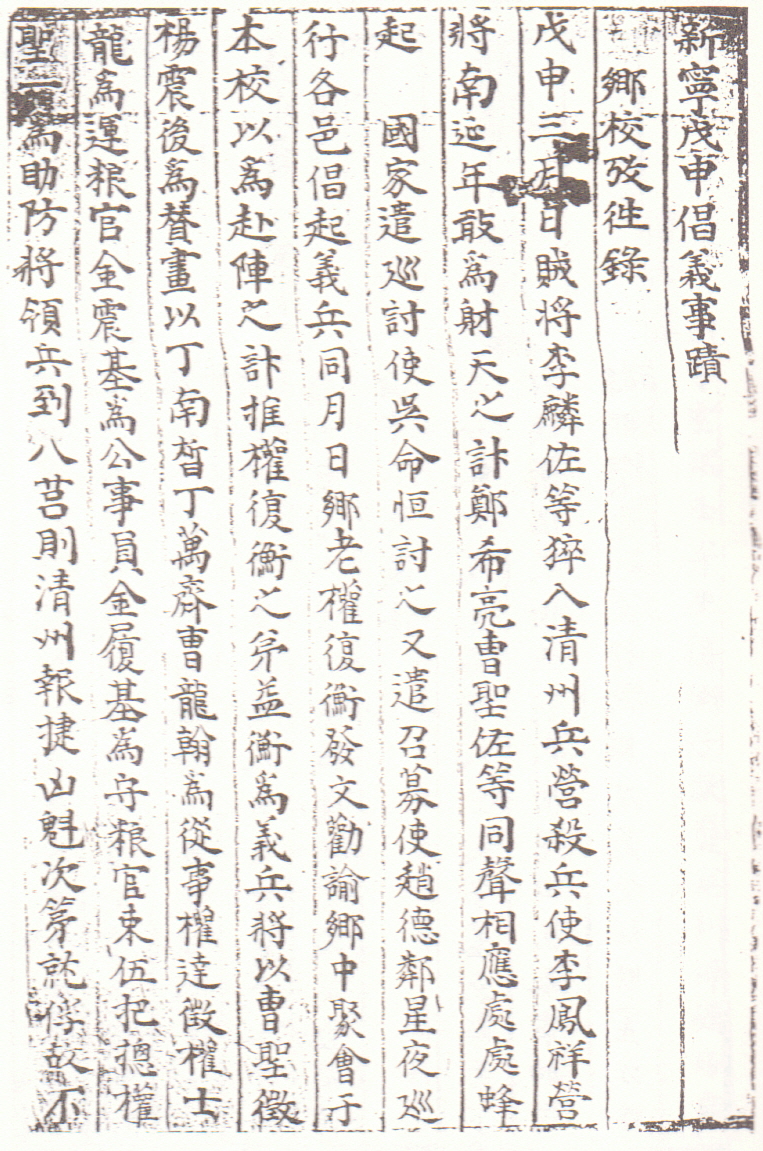 新寧戊申倡義事蹟
鄉校攷徃錄
戊申三月日賊將李麟佐等猝入清州兵營殺兵使李鳳祥營
將南延年敢爲射天之計鄭希亮曺聖佐等同聲相應處處蜂
起 國家遣巡討使吳命恒討之又遣召募使趙德鄰星夜巡
行各邑倡起義兵同月日鄉老權復衡發文勸諭鄉中聚會于
本校以爲赴陣之計推權復衡之弟益衡爲義兵將以曺聖徵
楊震後爲贊畫以丁南晳丁萬齊曺龍翰爲從事權達徵權士
龍爲運粮官金震基爲公事員金履基爲守粮官束伍把摠權
聖 爲助防將領兵到八莒則清州報捷凶魁次第就俘故不